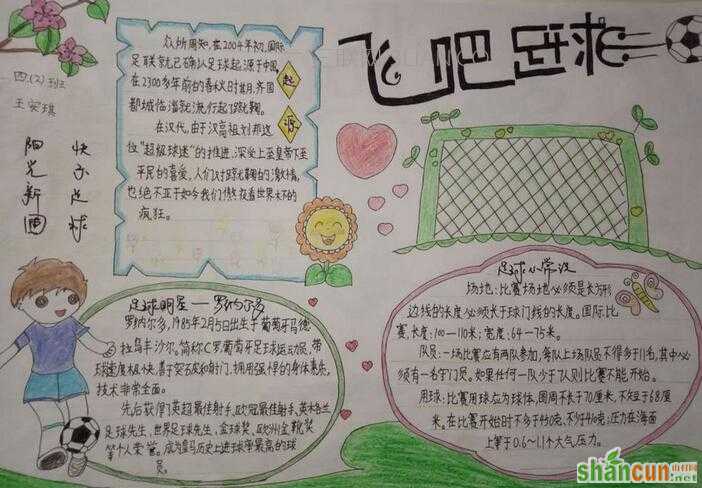 飞吧足球
四(2)班
王奕琪
阳光新围
快乐足球
众所周知,在2004年初,国际
足联就已确认足球起源于中国,
在2300多年前的春秋时期,齐国
都城临淄就流行起了蹴鞠。
在汉代,由于汉高祖刘邦这
位"超级球迷"的推进,深受上至皇帝下至
平民的喜爱,人们对蹴鞠的激情,
也绝不亚于如今我们熬夜看世界杯的
疯狂。
起
源
足球明星——罗纳尔多
罗纳尔多,1985年2月5日出生于葡萄牙马德
拉岛丰沙尔。简称C罗,葡萄牙足球运动员,带
球速度极快,善于突破和射门,拥用强悍的身体素质,
技术非常全面。
先后获得英超最佳射手,欧冠最佳射手,英格兰
足球先生,世界足球先生,金球奖,欧洲金靴奖
等个人荣誉。成为皇马历史上进球率最高的球
员。
足球小常识
场地:比赛场地必须是长方形
边线的长度必须长于球门线的长度。国际比
赛,长度:100—110米;宽度:64—75米。
队员:一场比赛应有两队参加,每队上场队员不得多于11名,其中必
须有一名守门员。如果任何一队少于7人则比赛不能开始。
用球:比赛用球应为球体,圆周不长于70厘米,不短于68厘
米。在比赛开始时不多于450克,不少于410克;压力在海面
上等于0.6~1.1个大气压力。
shancun
山村网
.net